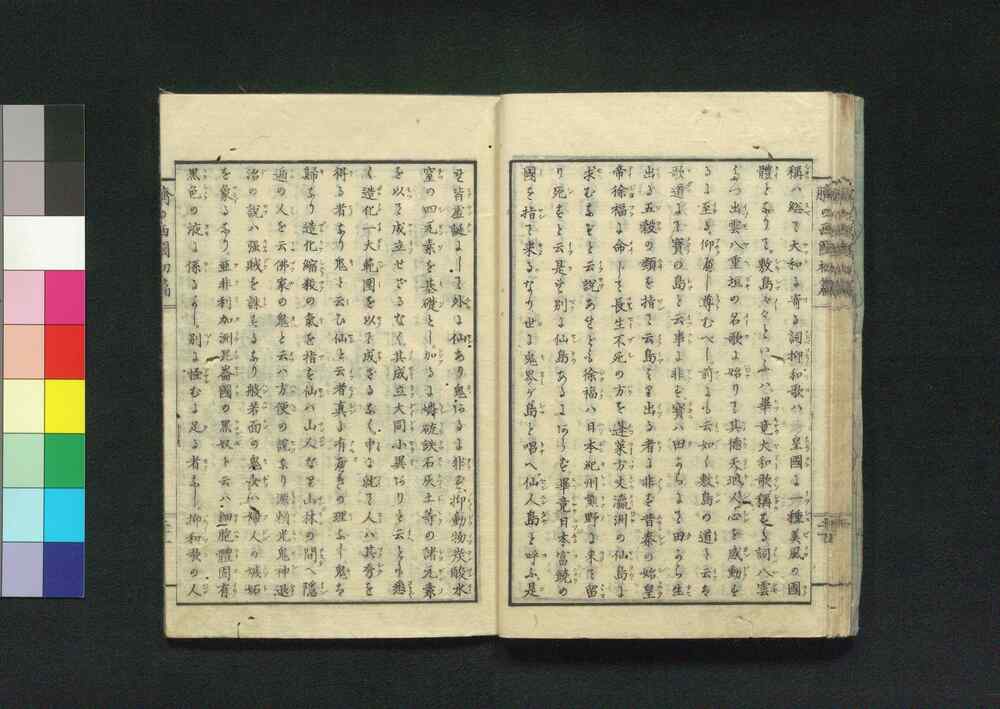 稱ハ総て大和に寄る詞抑和歌ハ皇國に一種美風の國
體となりて敷島々々といふハ畢竟大和歌稱をる詞八雲
立つ出雲八重垣の名歌に始りて其德天地人心を感動を
るに至る仰ぎ尊むべし前にも云如く敷島の道と云ち
歌道にて寶の島と云事に非を寶ハ田からにて田から生
出る五穀の類を指て云島より出る者に非を昔秦の始皇
帝徐福に命して長生不死の方を蓬萊方丈瀛洲の仙島に
求むるをと云説あせとも徐福ハ日本紀州熊野に来て留
り死をと云是を別に仙島あるにあらを畢竟日本富饒の
國を指て来るなり世に鬼界ヶ島と唱へ仙人島と呼ふ是
せ皆虚誕にして外に仙あり鬼あるに非を抑動物炭酸水
窒の四元素を基礎とし加るに燐硫鉄石灰土等の諸元素
を以て成立せざるなく其成立大同小異ありと云とも悉
く造化一大範圍を以て成ざるなく中に就て人ハ其秀を
得る者なり鬼と云ひ仙と云者真に有るるきの理なし鬼ち
歸なり造化縮殺の氣を指を仙ハ山人なを山林の間へ隱
遁の人を云佛家の鬼と云ハ方便の證なり源頼光鬼神退
治の說ハ强賊を誅をるなり般若面の鬼女ハ婦人の嫉妬
を象るなり亞非利加洲崑崙國の黒奴ト云ハ細胞體固有
黒色の液に係るなり別に怪むに足る者なし抑和歌の人